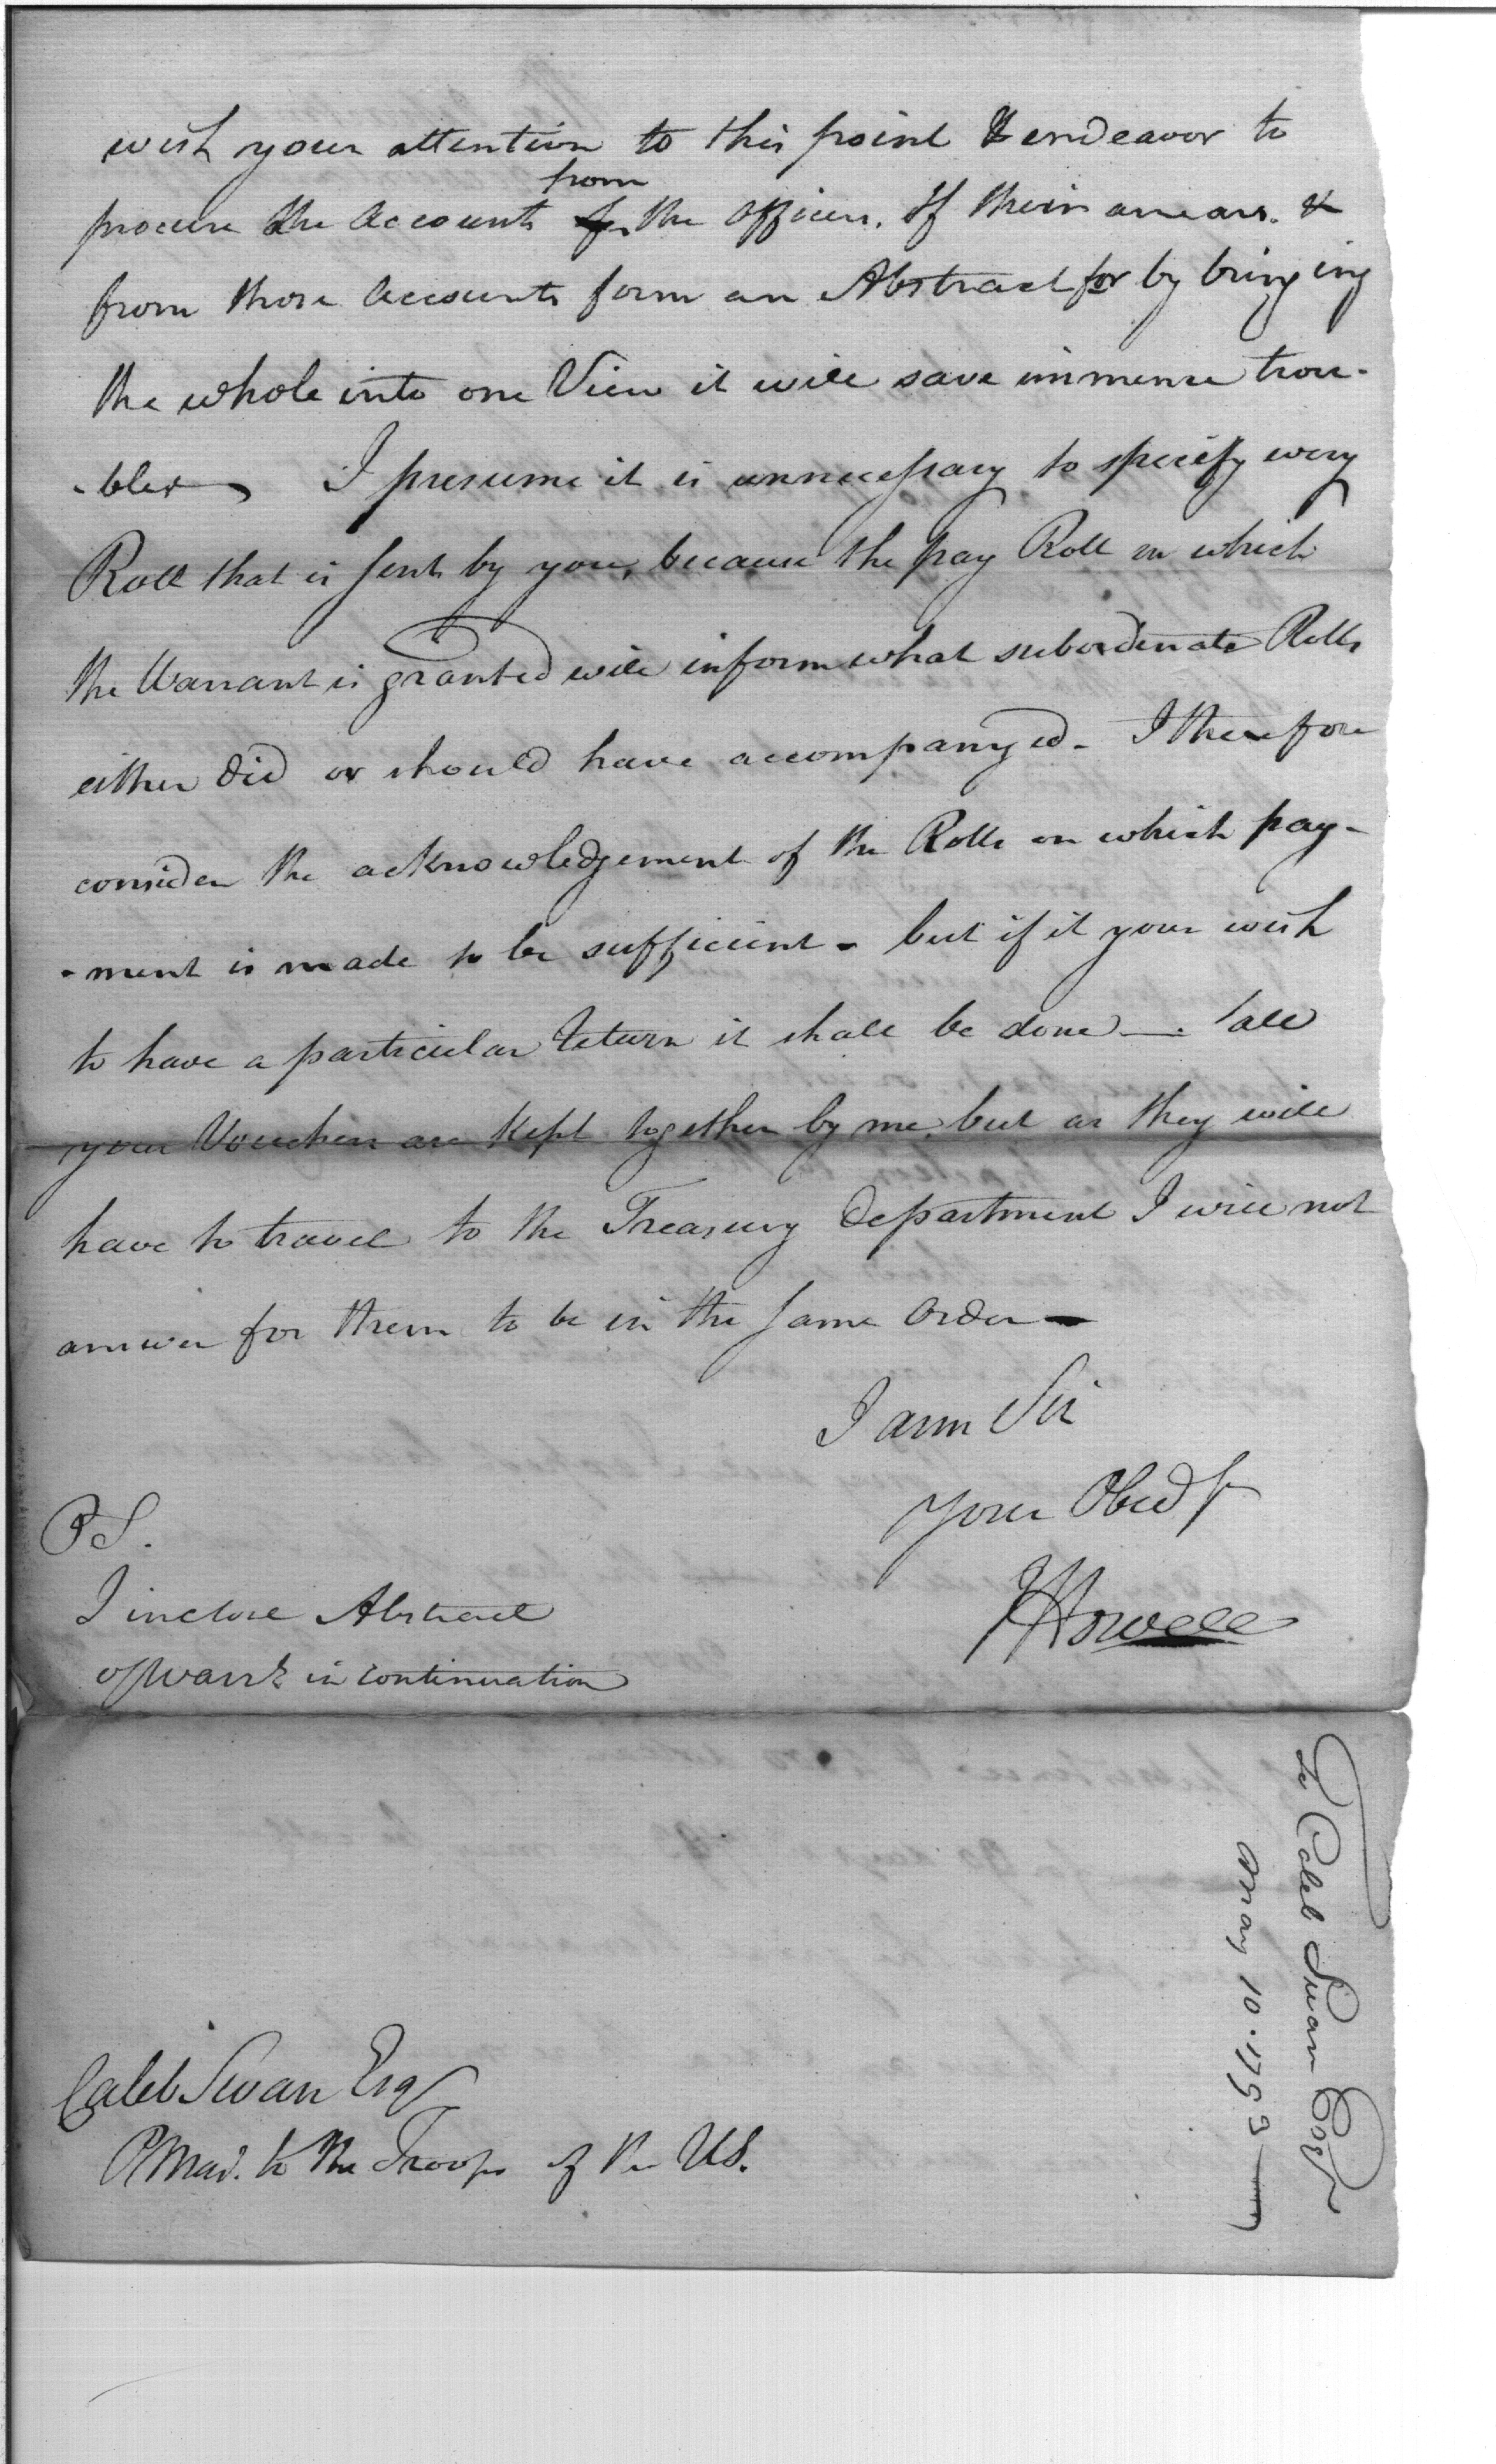 wish your attention to this point & endeavor to
from
procure the Accounts the Officers. of their arrears. &
from those Accounts form an Abstract for by bringing
the whole into one View it will save immense trou-
-bles I presume it is unnecessary to specify every
Roll that is sent by you, because the pay Roll on which
the Warrant is granted will inform what subordinate Rolls
either did or should have accompanyed - I therefore
consider the acknowledgement of the Rolls on which pay-
-ment is made to be sufficient - but if it your wish
to have a particular Return it shall be done —. all
your Vouchers are kept together by me, but as they will
have to travel to the Treasury department I will not
answer for them to be in the same order —
I am Sir
your Obed S
JHowell
PS.
I inclose Abstract
of warrts in continuation
Caleb Swan Esq
PMas. to the Troops of the US.
To Caleb Swan Esqr
May 10. 1793 —